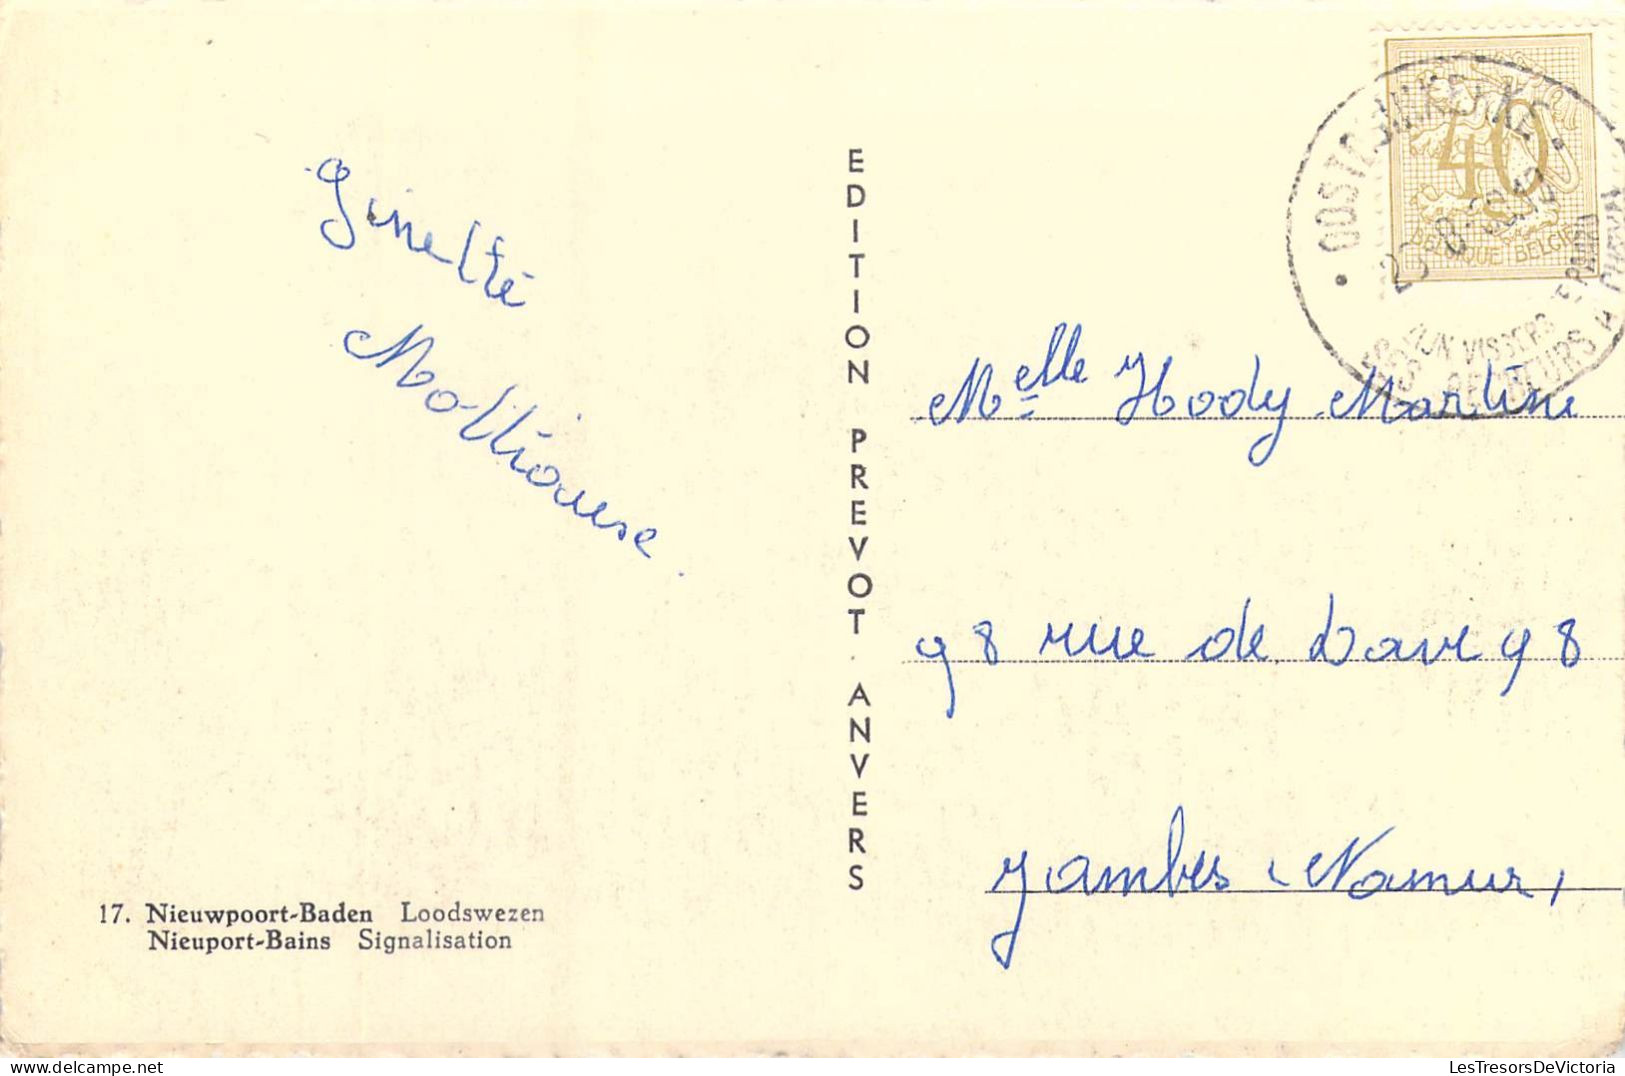 Ginette
EDITION PREVOT. ANVERS
17. Nieuwpoort-Baden Loodswezen
Nieuport-Bains Signalisation
40
BELGIQUE BELGIE
OOSTDUINKERKE
ZIJN VISSERS TE PAARD
SES PECHEURS A CHEVAL
Melle Hody Martine
98 rue de Dave 98
Jambes Namur,
LesTresorsDeVictoria